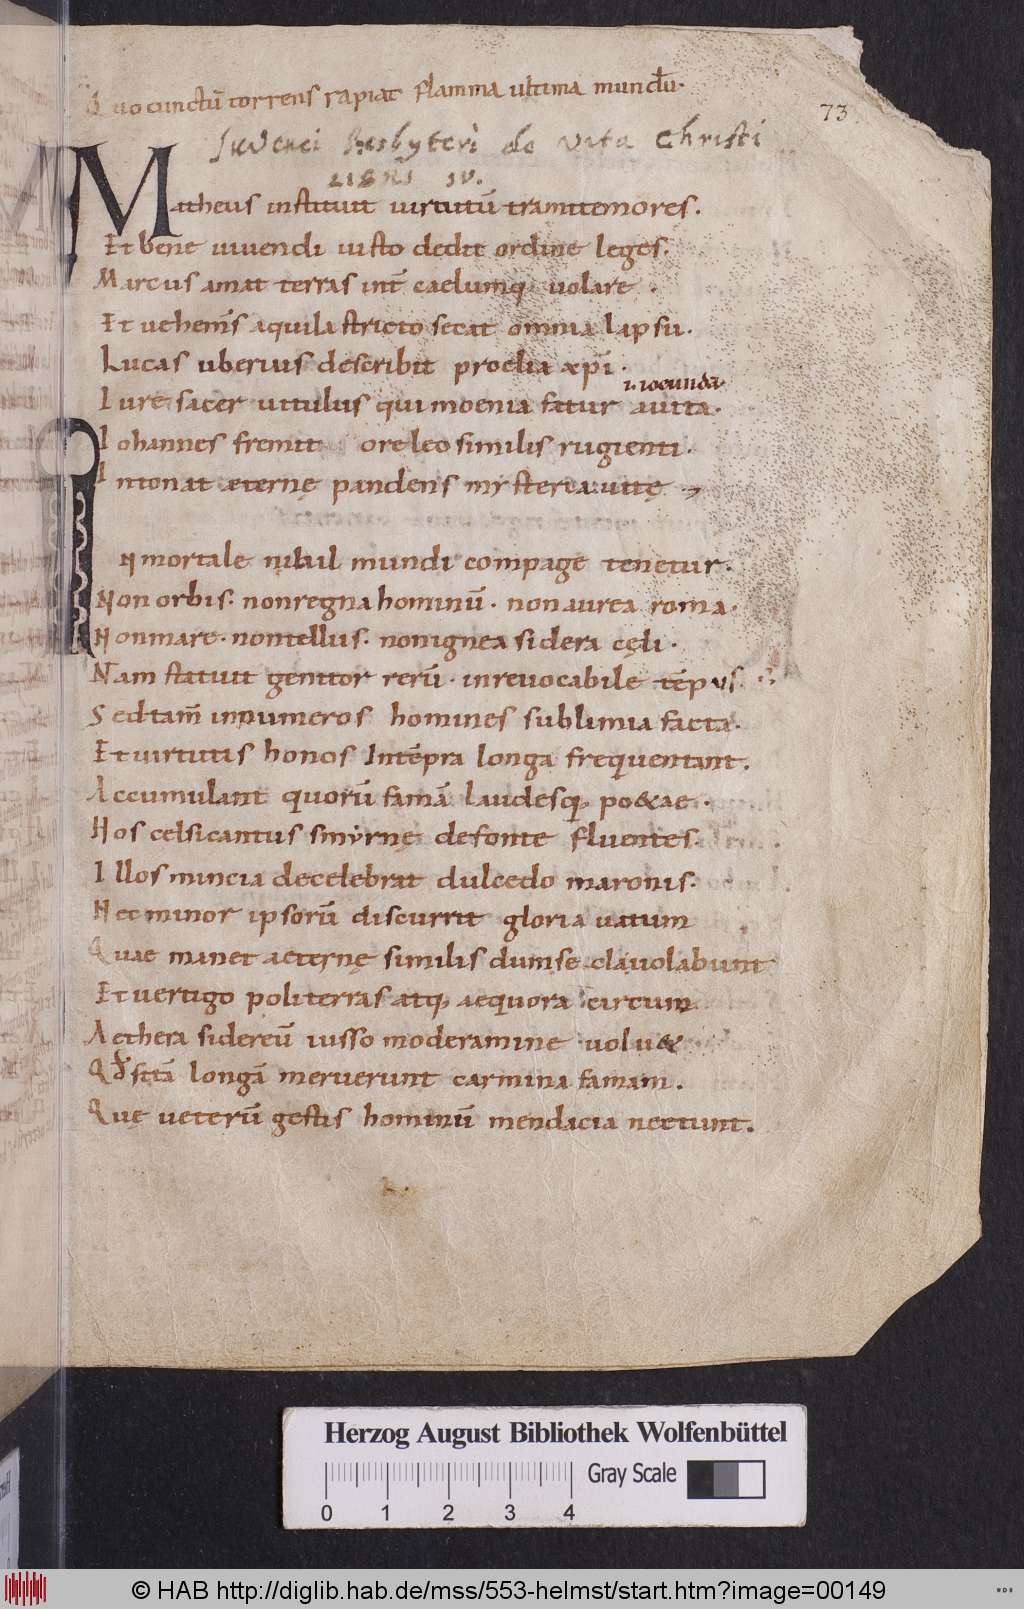 Quo cunctū torrens rapiat flamma ultima mundū.
73
Juvenci Presbyteri de vita Christi
LIBRI IV.
Matheus instituit uirtutū tramitemores.
Et bene uiuendi iusto dedit ordine leges.
Marcus amat terras int̄ caelumq; uolare.
Et uehem̄s aquila stricto secat omnia lapsu.
Lucas uberius describit proelia xp̄i.
i. iocunda.
Iure sacer uitulus qui moenia fatur auita.
Iohannes fremit ore leo similis rugienti.
Intonat eternę pandens mysteria uitę
Inmortale nihil mundi compage tenetur.
Non orbis. non regna hominū. non aurea roma.
Non mare. non tellus. non ignea sidera cęli.
Nam statuit genitor rerū. inreuocabile tēpus.
Sed tam̄ innumeros homines sublimia facta.
Et uirtutis honos Intēpra longa frequentant.
Accumulant quorū famā laudesq; po&ae.
Hos celsi cantus smyrnę defonte fluentes.
Illos mincia decelebrat dulcedo maronis.
Nec minor ipsorū discurrit gloria uatum
Quae manet aeternę similis dumse cla uolabunt
Et uertigo poli terras atq; aequora circum
Aethera sidereū iusso moderamine uolu&
Qđ sitā longā meruerunt carmina famam.
Quę ueterū gestis hominū mendacia nectunt.
Herzog August Bibliothek Wolfenbüttel
Gray Scale
0 1 2 3 4
© HAB http://diglib.hab.de/mss/553-helmst/start.htm?image=00149